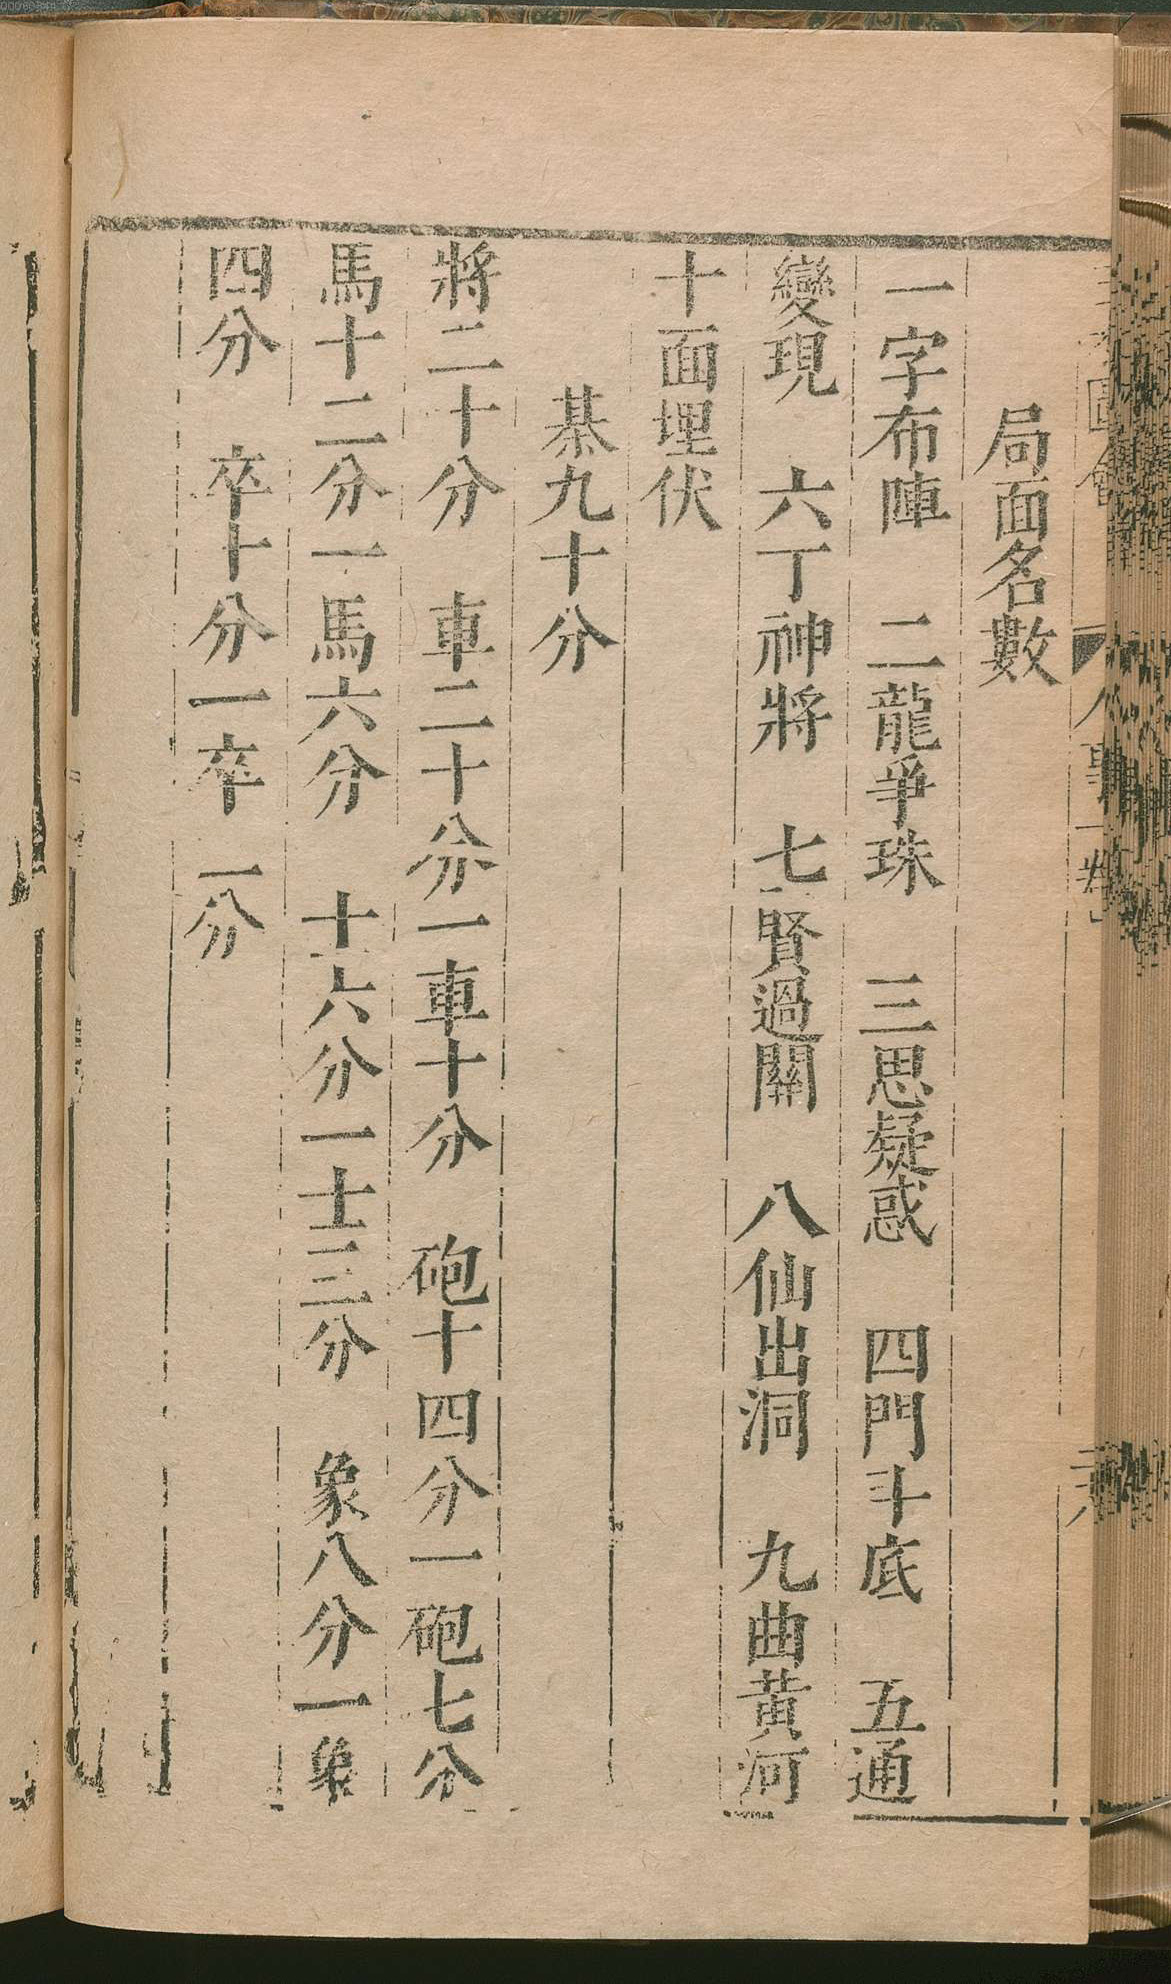 局面名數
一字布陣 二龍爭珠 三思疑惑 四門斗底 五通
變現 六丁神將 七賢過關 八仙出洞 九曲黃河
十面埋伏
棊九十分
將二十分 車二十分一車十分 砲十四分一砲七分
馬十二分一馬六分 十六分一士三分 象八分一象
四分 卒十分一卒一分